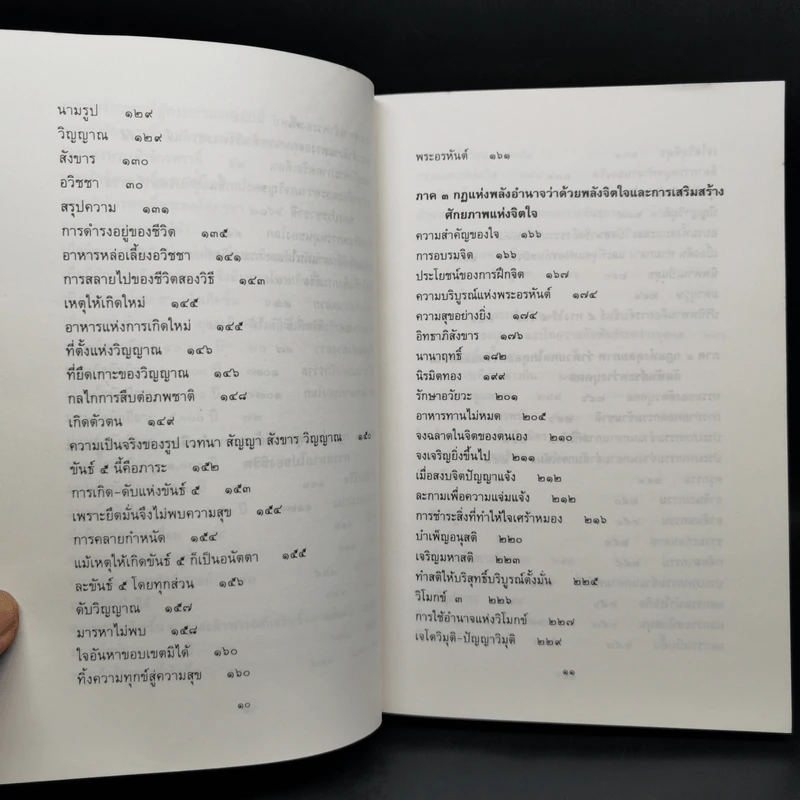 นามรูป ๑๒๙
วิญญาณ ๑๒๙
สังขาร ๑๓๐
อวิชชา ๓๐
สรุปความ ๑๓๑
การดำรงอยู่ของชีวิต ๑๓๕
อาหารหล่อเลี้ยงอวิชชา ๑๔๑
การสลายไปของชีวิตสองวิธี ๑๔๓
เหตุให้เกิดใหม่ ๑๔๕
อาหารแห่งการเกิดใหม่ ๑๔๕
ที่ตั้งแห่งวิญญาณ ๑๔๖
ที่ยึดเกาะของวิญญาณ ๑๔๖
กลไกการสืบต่อภพชาติ ๑๔๘
เกิดตัวตน ๑๔๙
ความเป็นจริงของรูป เวทนา สัญญา สังขาร วิญญาณ ๑๕๐
ขันธ์ ๕ นี้คือภาระ ๑๕๒
การเกิด-ดับแห่งขันธ์ ๕ ๑๕๓
เพราะยึดมั่นจึงไม่พบความสุข ๑๕๔
การคลายกำหนัด ๑๕๔
แม้เหตุให้เกิดขันธ์ ๕ ก็เป็นอนัตตา ๑๕๕
ละขันธ์ ๕ โดยทุกส่วน ๑๕๖
ดับวิญญาณ ๑๕๗
มารหาไม่พบ ๑๕๘
ใจอันหาขอบเขตมิได้ ๑๖๐
ทิ้งความทุกข์สู่ความสุข ๑๖๐
๑๐
พระอรหันต์ ๑๖๑
ภาค ๓ กฏแห่งพลังอำนาจว่าด้วยพลังจิตใจและการเสริมสร้าง
ศักยภาพแห่งจิตใจ
ความสำคัญของใจ ๑๖๖
การอบรมจิต ๑๖๖
ประโยชน์ของการฝึกจิต ๑๖๗
ความบริบูรณ์แห่งพระอรหันต์ ๑๗๔
ความสุขอย่างยิ่ง ๑๗๔
อิทธาภิสังขาร ๑๗๖
นานาฤทธิ์ ๑๘๒
นิรมิตทอง ๑๙๙
รักษาอวัยวะ ๒๐๑
อาหารทานไม่หมด ๒๐๕
จงฉลาดในจิตของตนเอง ๒๑๐
จงเจริญยิ่งขึ้นไป ๒๑๑
เมื่อสงบจิตปัญญาแจ้ง ๒๑๒
ละกามเพื่อความแจ่มแจ้ง ๒๑๒
การชำระสิ่งที่ทำให้ใจเศร้าหมอง ๒๑๖
บำเพ็ญอนุสติ ๒๒๐
เจริญมหาสติ ๒๒๓
ทำสติให้บริสุทธิ์บริบูรณ์ตั้งมั่น ๒๒๕
วิโมกข์ ๓ ๒๒๖
การใช้อำนาจแห่งวิโมกข์ ๒๒๗
เจโตวิมุติ-ปัญญาวิมุติ ๒๒๙
๑๑